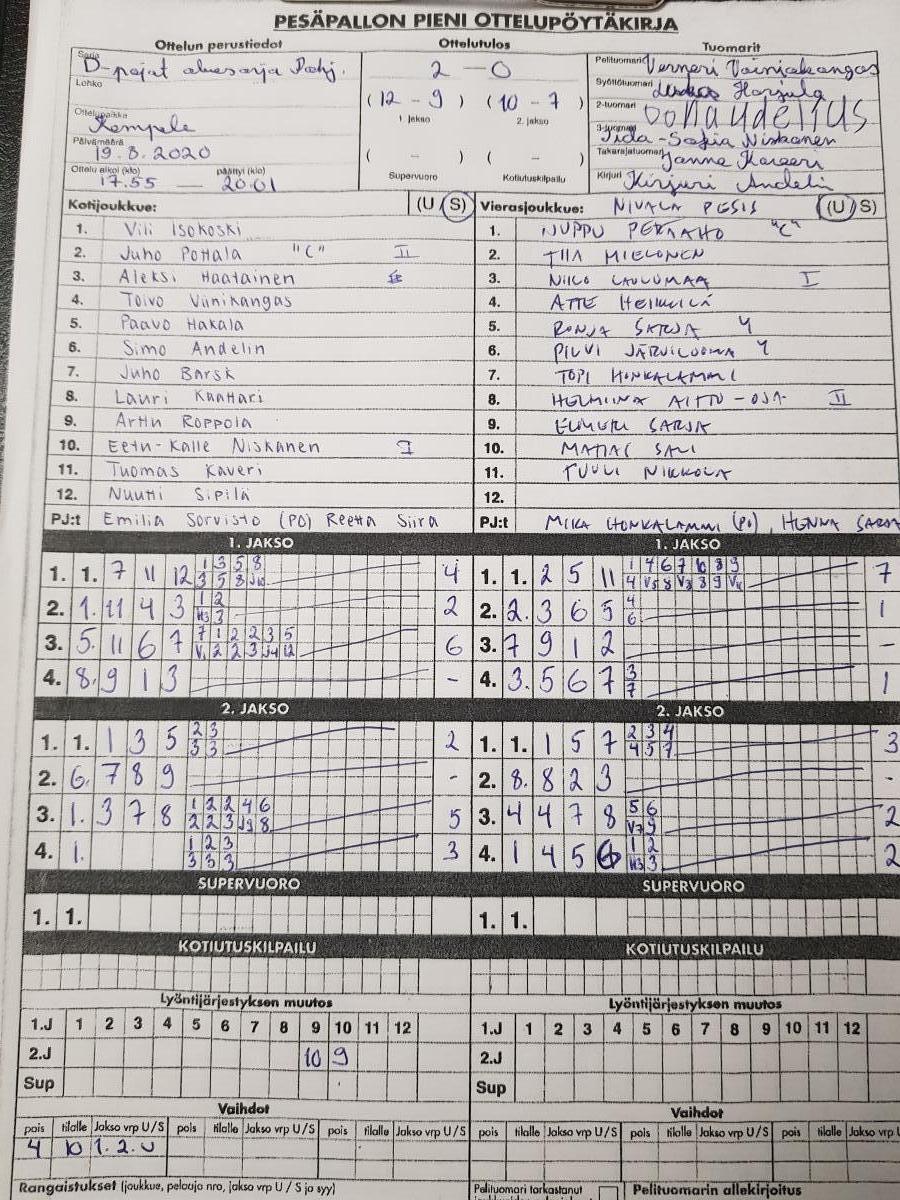 PESÄPALLON PIENI OTTELUPÖYTÄKIRJA
Ottelun perustiedot
Ottelutulos
Tuomarit
Sarja D-pojat aluesarja Pohj.
Lohko
Ottelupaikka Kempele
Päivämäärä 19.8.2020
Ottelu alkoi (klo) 17.55 — päättyi (klo) 20.01
2 - 0
(12 - 9) (10 - 7)
1. jakso 2. jakso
( - ) ( - )
Supervuoro Kotiutuskilpailu
Pelituomari Verneri Vainiokangas
Syöttötuomari Harjula
2-tuomari
3-tuomari Iida-Sofia Niskanen
Takarajatuomari Janne Kaveri
Kirjuri Kirjuri Andelin
Kotijoukkue: (U S)
1. Vili Isokoski
2. Juho Pottala "C" II
3. Aleksi Haatainen
4. Toivo Viinikangas
5. Paavo Hakala
6. Simo Andelin
7. Juho Barsk
8. Lauri Kanttari
9. Arttu Roppola
10. Eetu-Kalle Niskanen I
11. Tuomas Kaveri
12. Nuutti Sipilä
PJ:t Emilia Sorvisto (PO) Reetta Siira
Vierasjoukkue: NIVALA PESIS (U S)
1. NUPPU PERÄAHO "C"
2. TIIA MIELONEN
3. NIILO LAULUMAA I
4. ATTE HEIKKILÄ
5. RONJA SARJA Y
6. PILVI JÄRVILUOMA Y
7. TOPI HONKALAMMI
8. HELMIINA AITTO-OJA II
9. ELMERI SARJA
10. MATIAS SALI
11. TUULI NIKKOLA
12.
PJ:t MIKA HONKALAMMI (PJ), HENNA SARJA
1. JAKSO
1. 1. 7 11 12 1 3 5 8 4
3 5 8 J10
2. 1. 11 4 3 1 2 2
H3 3
3. 5. 11 6 7 7 1 2 2 3 5 6
V1 2 2 3 J4 12
4. 8. 9 1 3 -
1. JAKSO
1. 1. 2 5 11 1 4 6 7 10 8 9 7
4 V5 8 V8 8 9 V11
2. 2. 3 6 5 4 1
6
3. 7 9 1 2 -
4. 3. 5 6 7 3 1
7
2. JAKSO
1. 1. 1 3 5 2 3 2
3 3
2. 6. 7 8 9 -
3. 1. 3 7 8 1 2 2 4 6 5
2 2 3 J9 8
4. 1. 1 2 3 3
3 3 3
2. JAKSO
1. 1. 1 5 7 2 3 4 3
4 5 7
2. 8. 8 2 3 -
3. 4 4 7 8 5 6 2
V7 9
4. 1 4 5 6 1 2 2
H3 3
SUPERVUORO
1. 1.
SUPERVUORO
1. 1.
KOTIUTUSKILPAILU
KOTIUTUSKILPAILU
Lyöntijärjestyksen muutos
1.J 1 2 3 4 5 6 7 8 9 10 11 12
2.J 10 9
Sup
Lyöntijärjestyksen muutos
1.J 1 2 3 4 5 6 7 8 9 10 11 12
2.J
Sup
Vaihdot
pois tilalle Jakso vrp U/S pois tilalle Jakso vrp U/S pois tilalle Jakso vrp U/S
4 10 1. 2. U
Vaihdot
pois tilalle Jakso vrp U/S pois tilalle Jakso vrp U/S pois tilalle Jakso vrp U
Rangaistukset (joukkue, pelaaja nro, jakso vrp U / S ja syy)
Pelituomari tarkastanut
Pelituomarin allekirjoitus